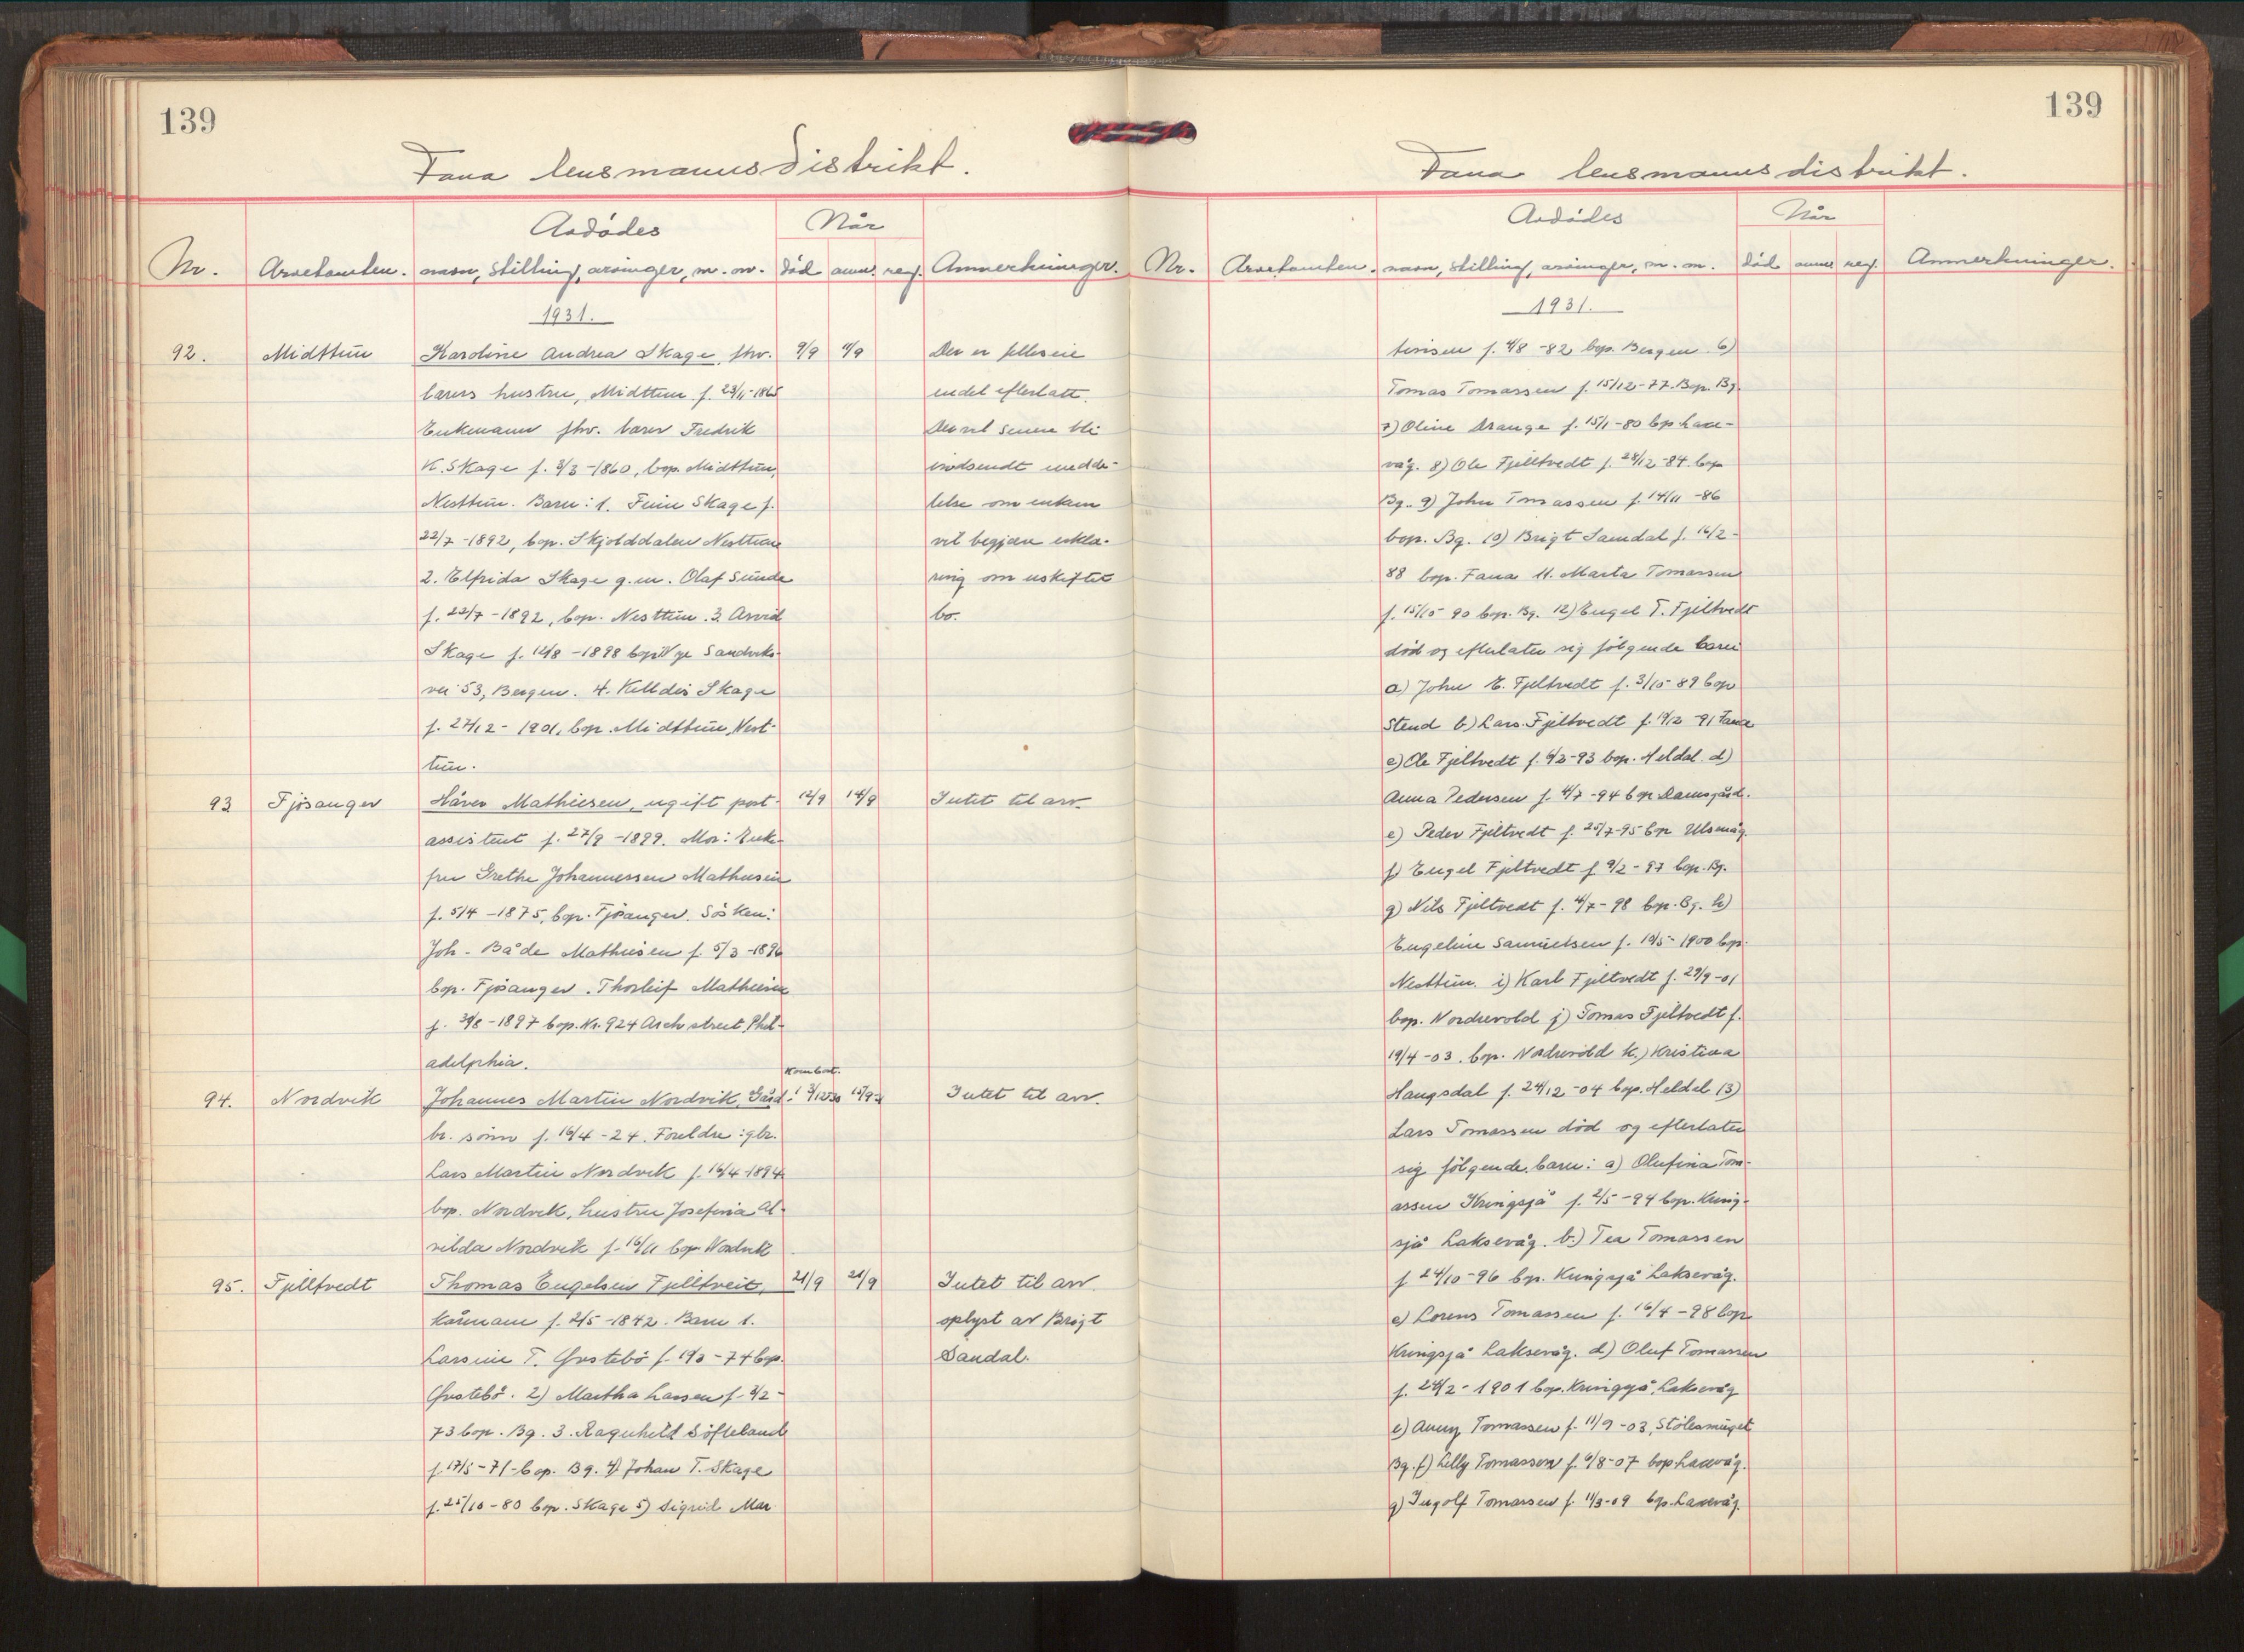 139
Fana lensmannsdistrikt.
Avdödes
Når
Nr. Arvetomten. navn, stilling, arvinger, m. m. död anm. reg. Anmerkninger.
1931.
92. Midttun Karoline Andrea Skage, fhv. 9/9 11/9 Der er felleseie
lærers hustru, Midttun f. 23/11-1865 endel efterlatt.
Enkemann fhv. lærer Fredrik Der vil senere bli
K. Skage f. 3/3-1860, bop. Midttun, innsendt medde-
Nesttun. Barn: 1. Finn Skage f. lelse om enkem
22/7-1892, bop. Skjolddalen Nesttun vil begjære erklæ-
2. Elfrida Skage g.m. Olaf Sunde ring om uskiftet
f. 22/7-1892, bop. Nesttun. 3. Arvid bo.
Skage f. 12/8-1898 bop. Nye Sandviks-
vei 53, Bergen. 4. Kelldis Skage
f. 27/12-1901, bop. Midttun, Nest-
tun.
93 Fjösanger Håvar Mathiesen, ugift post- 12/9 14/9 Intet til arv.
assistent f. 27/9-1899. Mor: Enke-
fru Grethe Johannessen Mathiesen
f. 5/4-1875, bop. Fjösanger. Sösken:
Joh. Både Mathiesen f. 5/3-1896
bop. Fjösanger. Thorleif Mathiesen
f. 30/8-1897 bop. Nr. 924 Arch street Phil-
adelphia.
Kom bort.
94. Nordvik Johannes Martin Nordvik, Gård- 3/12-30 15/9-31 Intet til arv.
br. sönn f. 16/4-24. Foreldre: gbr.
Lars Martin Nordvik f. 16/4-1894
bop. Nordvik, hustru Josefina Al-
vilda Nordvik f. 16/11 bop. Nordvik
95. Fjelltvedt Thomas Engelsen Fjelltveit, 21/9 21/9 Intet til arv.
kårmann f. 2/5-1842. Barn 1. oplyst av Brigt
Larsine T. Grstebö f. 19/3-74 bop. Sandal.
Grstebö. 2) Martha Larsen f. 3/2-
73 bop. Bg. 3. Ragnhild Söfteland
f. 17/5-71-bop. Bg. 4) Johan T. Skage
f. 25/10-80 bop. Skage 5) Sigrid Mar
139
Fana lensmannsdistrikt.
Avdödes
Når
Nr. Arvetomten. navn, stilling, arvinger, m. m. död anm. reg. Anmerkninger.
1931.
tinisen f. 4/8-82 bop. Bergen 6)
Tomas Tomassen f. 15/12-77. Bop. Bg.
7) Oline Drange f. 15/1-80 bp Laxe-
våg. 8) Ole Fjelltvedt f. 28/12-84 bop
Bg. 9) John Tomassen f. 14/11-86
bop. Bg. 10) Brigt Samdal f. 16/2-
88 bop. Fana 11. Marta Tomassen
f. 15/10 90 bop. Bg. 12) Engel T. Fjeltvedt
död og efterlater sig fölgende barn
a) John E. Fjeltvedt f. 3/10 89 bop
Stend b) Lars Fjeltvedt f. 19/12-91 Fana
c) Ole Fjeltvedt f. 6/2-93 bop. Heldal. d)
Anna Pedersen f. 4/7-94 bop Damsgård.
e) Peder Fjeltvedt f. 25/7-95 bop Ulsmåg.
f) Engel Fjeltvedt f. 9/2-97 bop. Bg.
g) Nils Fjeltvedt f. 4/7-98 bop. Bg. h)
Engeline Samuelsen f. 10/5-1900 bop.
Nesttun. i) Karl Fjeltvedt f. 29/9-01
bop. Nordrevold j) Tomas Fjeltvedt f.
19/4-03. bop. Nordrevold k.) Kristina
Haugsdal f. 24/12-04 bop. Heldal 13)
Lars Tomassen död og efterlater
sig fölgende barn: a) Olufina Tom-
assen Kringsjå f. 2/5-94 bop. Kring-
sjå Laksevåg. b.) Tea Tomassen
f 24/10-96 bp. Kringsjå Laksevåg.
c) Lorens Tomassen f. 16/4-98 bop
Kringsjå Laksevåg. d) Oluf Tomassen
f. 24/2-1901 bop. Kringsjå, Laksevåg
e) Anny Tomassen f. 11/9-03, Stölesmuget
Bg. f) Lilly Tomassen f. 6/8-07 bop Laxevåg.
g) Ingolf Tomassen f. 11/3-09 bp. Laxevåg.